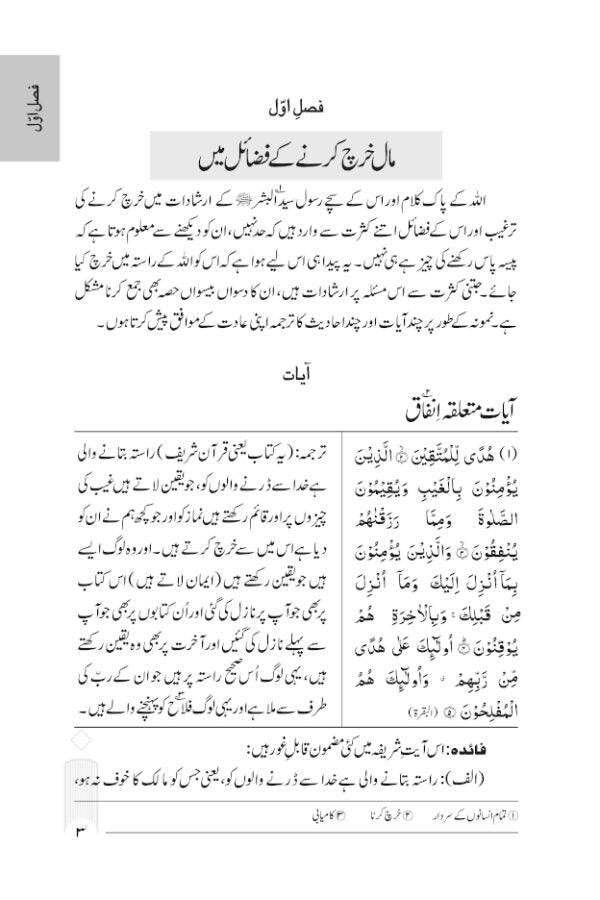 فصل اوّل
فصلِ اوّل
مال خرچ کرنے کے فضائل میں
اللہ کے پاک کلام اور اس کے سچے رسول سیّد البشر۱ ﷺ کے ارشادات میں خرچ کرنے کی
ترغیب اور اس کے فضائل اتنے کثرت سے وارد ہیں کہ حد نہیں، ان کو دیکھنے سے معلوم ہوتا ہے کہ
پیسہ پاس رکھنے کی چیز ہے ہی نہیں۔ یہ پیدا ہی اس لیے ہوا ہے کہ اس کو اللہ کے راستہ میں خرچ کیا
جائے۔ جتنی کثرت سے اس مسئلہ پر ارشادات ہیں، ان کا دسواں بیسواں حصہ بھی جمع کرنا مشکل
ہے۔ نمونہ کے طور پر چند آیات اور چند احادیث کا ترجمہ اپنی عادت کے موافق پیش کرتا ہوں۔
آیات
آیات متعلقہ اِنفاق۲
(۱) هُدًى لِّلْمُتَّقِيْنَ ۝۲ الَّذِيْنَ
يُؤْمِنُوْنَ بِالْغَيْبِ وَيُقِيْمُوْنَ
الصَّلٰوةَ وَمِمَّا رَزَقْنٰهُمْ
يُنْفِقُوْنَ ۝۳ وَالَّذِيْنَ يُؤْمِنُوْنَ
بِمَآ اُنْزِلَ اِلَيْكَ وَمَآ اُنْزِلَ
مِنْ قَبْلِكَ ۚ وَبِالْاٰخِرَةِ هُمْ
يُوْقِنُوْنَ ۝۴ اُولٰٓئِكَ عَلٰى هُدًى
مِّنْ رَّبِّهِمْ ۤ وَاُولٰٓئِكَ هُمُ
الْمُفْلِحُوْنَ ۝۵ (البقرة)
ترجمہ: (یہ کتاب یعنی قرآن شریف) راستہ بتانے والی
ہے خدا سے ڈرنے والوں کو، جو یقین لاتے ہیں غیب کی
چیزوں پر اور قائم رکھتے ہیں نماز کو اور جو کچھ ہم نے ان کو
دیا ہے اس میں سے خرچ کرتے ہیں۔ اور وہ لوگ ایسے
ہیں جو یقین رکھتے ہیں (ایمان لاتے ہیں) اس کتاب
پر بھی جو آپ پر نازل کی گئی اور اُن کتابوں پر بھی جو آپ
سے پہلے نازل کی گئیں اور آخرت پر بھی وہ یقین رکھتے
ہیں، یہی لوگ اُس صحیح راستہ پر ہیں جو ان کے ربّ کی
طرف سے ملا ہے اور یہی لوگ فلاح۳ کو پہنچنے والے ہیں۔
فائدہ: اس آیتِ شریفہ میں کئی مضمون قابلِ غور ہیں:
(الف): راستہ بتانے والی ہے خدا سے ڈرنے والوں کو، یعنی جس کو مالک کا خوف نہ ہو،
① تمام انسانوں کے سردار ② خرچ کرنا ③ کامیابی
۳